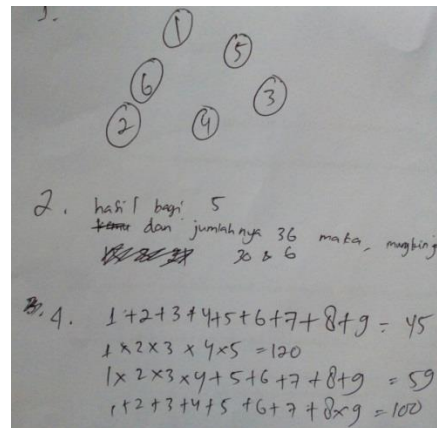 1.
1
5
6
3
2
4
2. hasil bagi 5
dan jumlahnya 36 maka, mungkin
30 & 6
4. 1+2+3+4+5+6+7+8+9 = 45
1×2×3×4×5 = 120
1×2×3×4+5+6+7+8+9 = 59
1+2+3+4+5+6+7+8×9 = 100